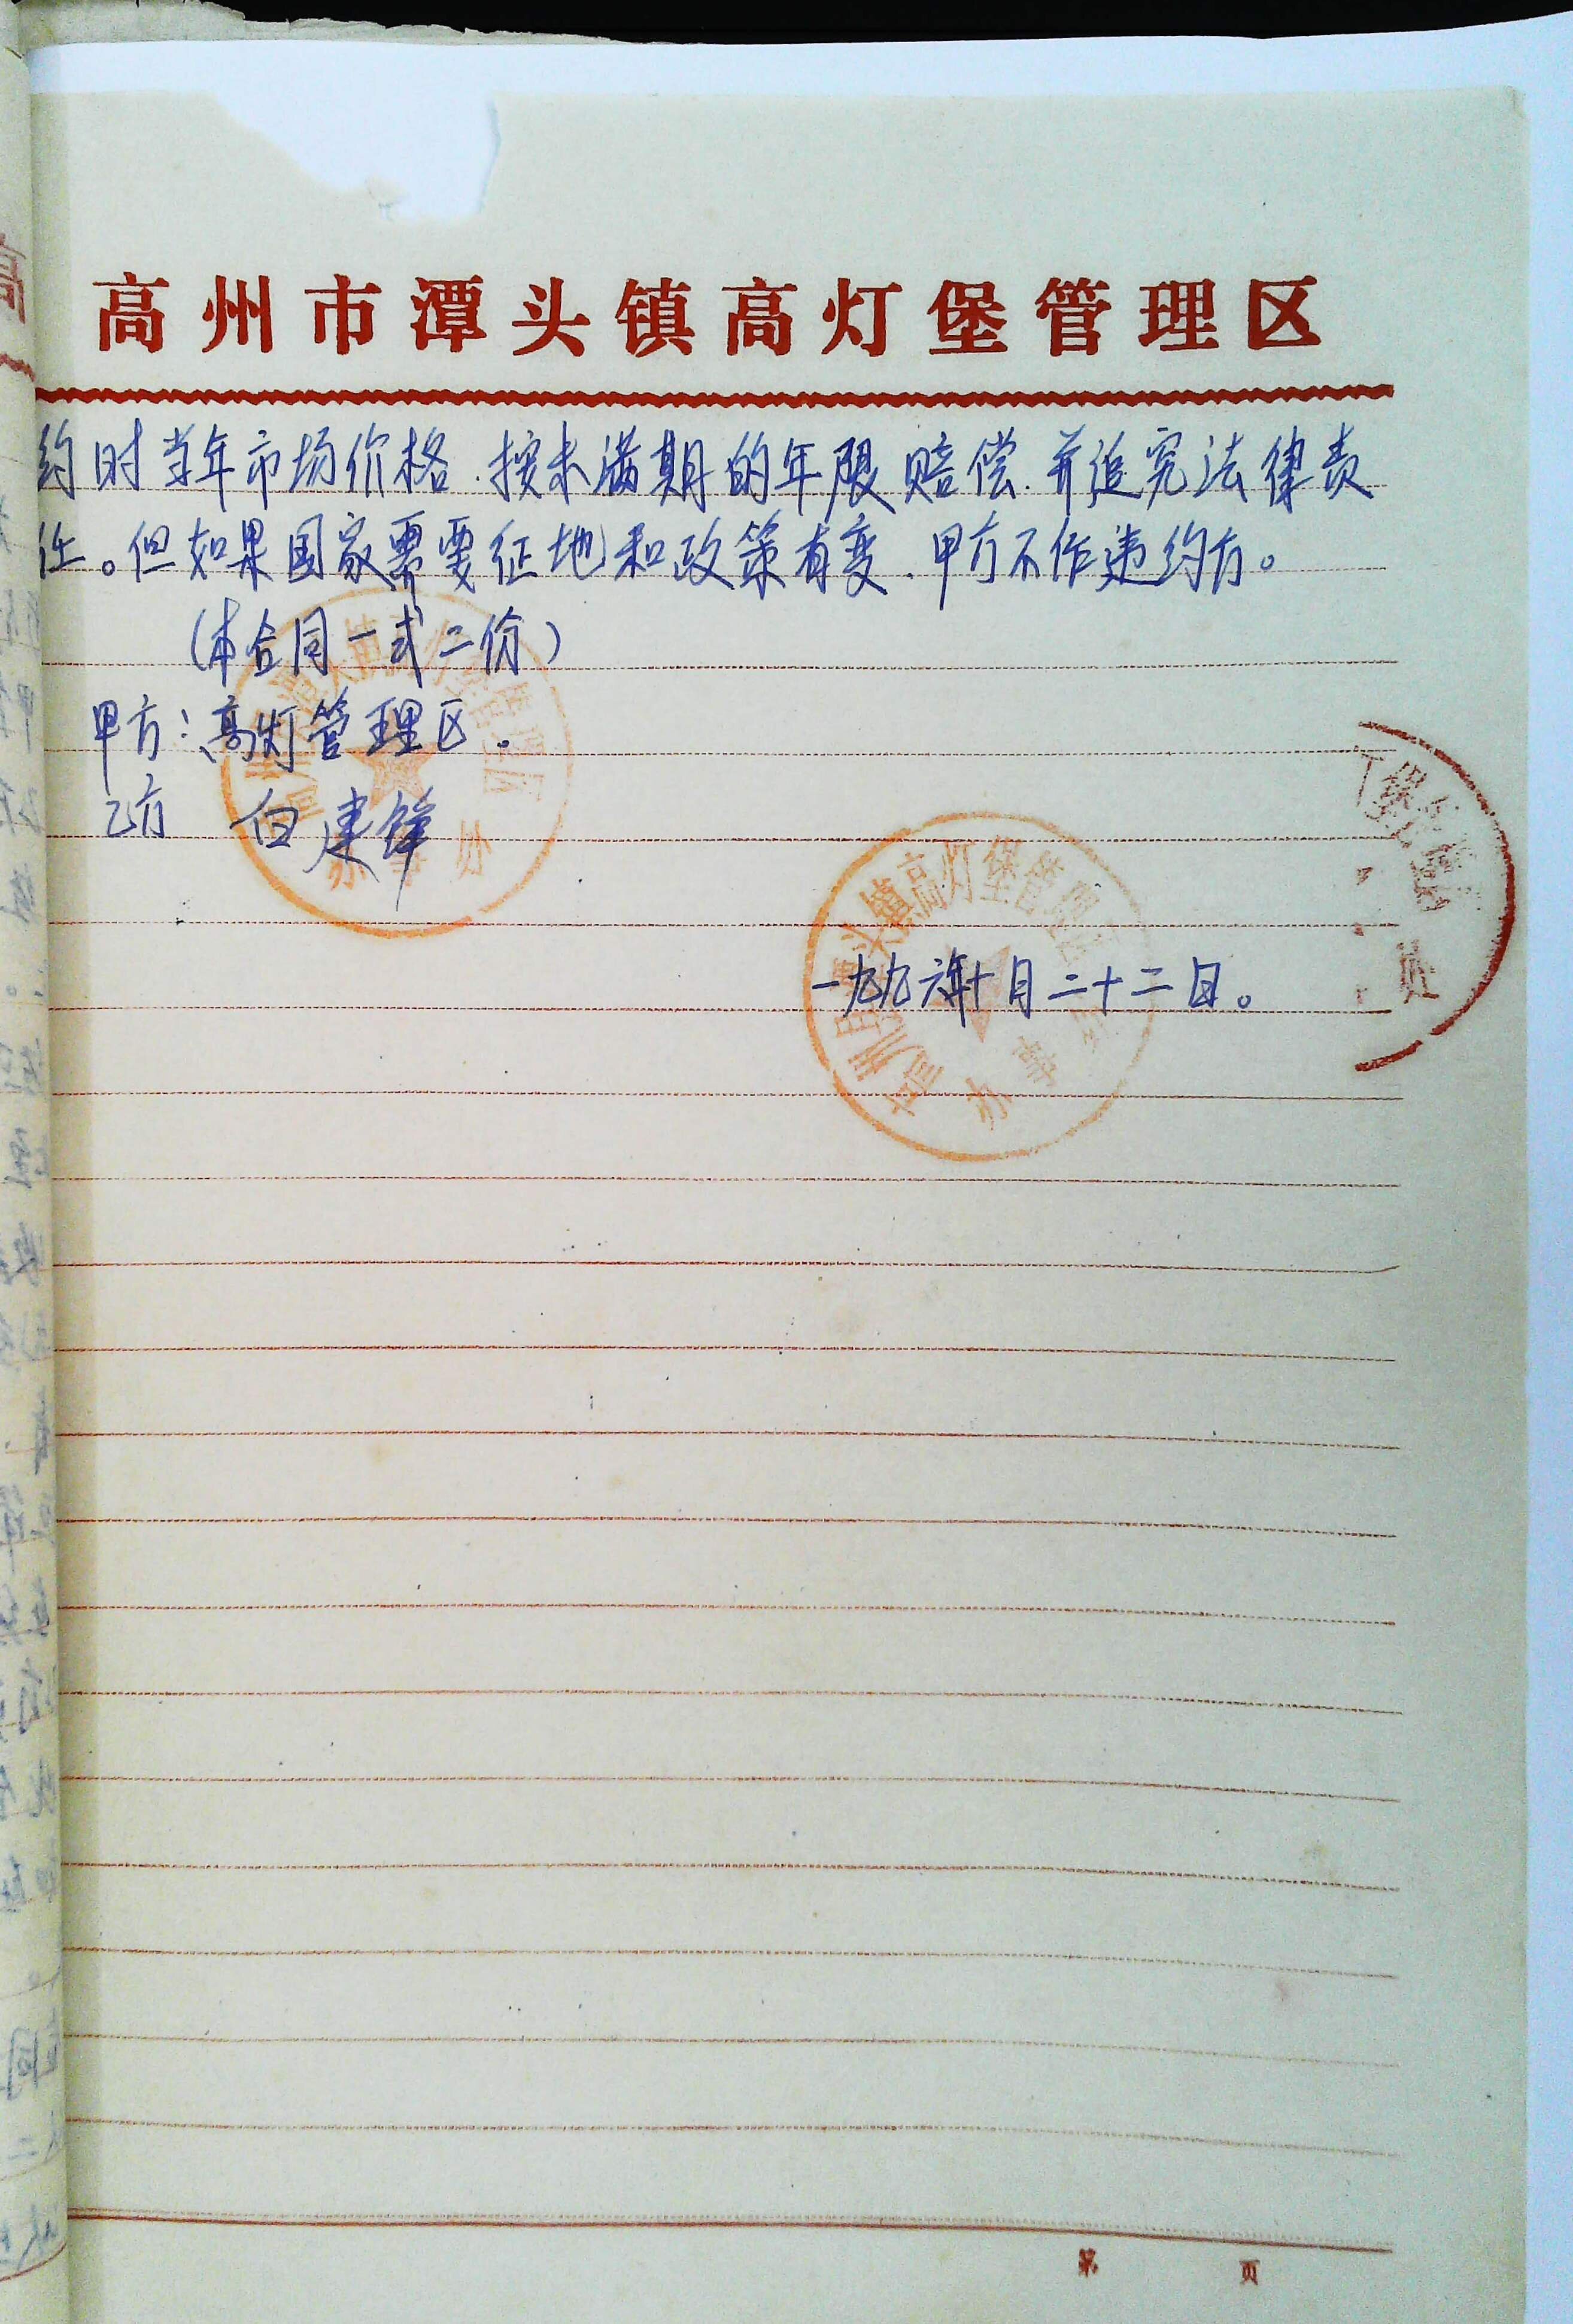 高州市潭头镇高灯堡管理区
约时当年市场价格.按未满期的年限赔偿.并追究法律责
任。但如果国家需要征地和政策有变.甲方不作违约方。
(本合同一式二份)
甲方:高灯管理区.
乙方 白建锋
一九九六年十月二十二日。
头镇高灯堡管理
办事
第 页